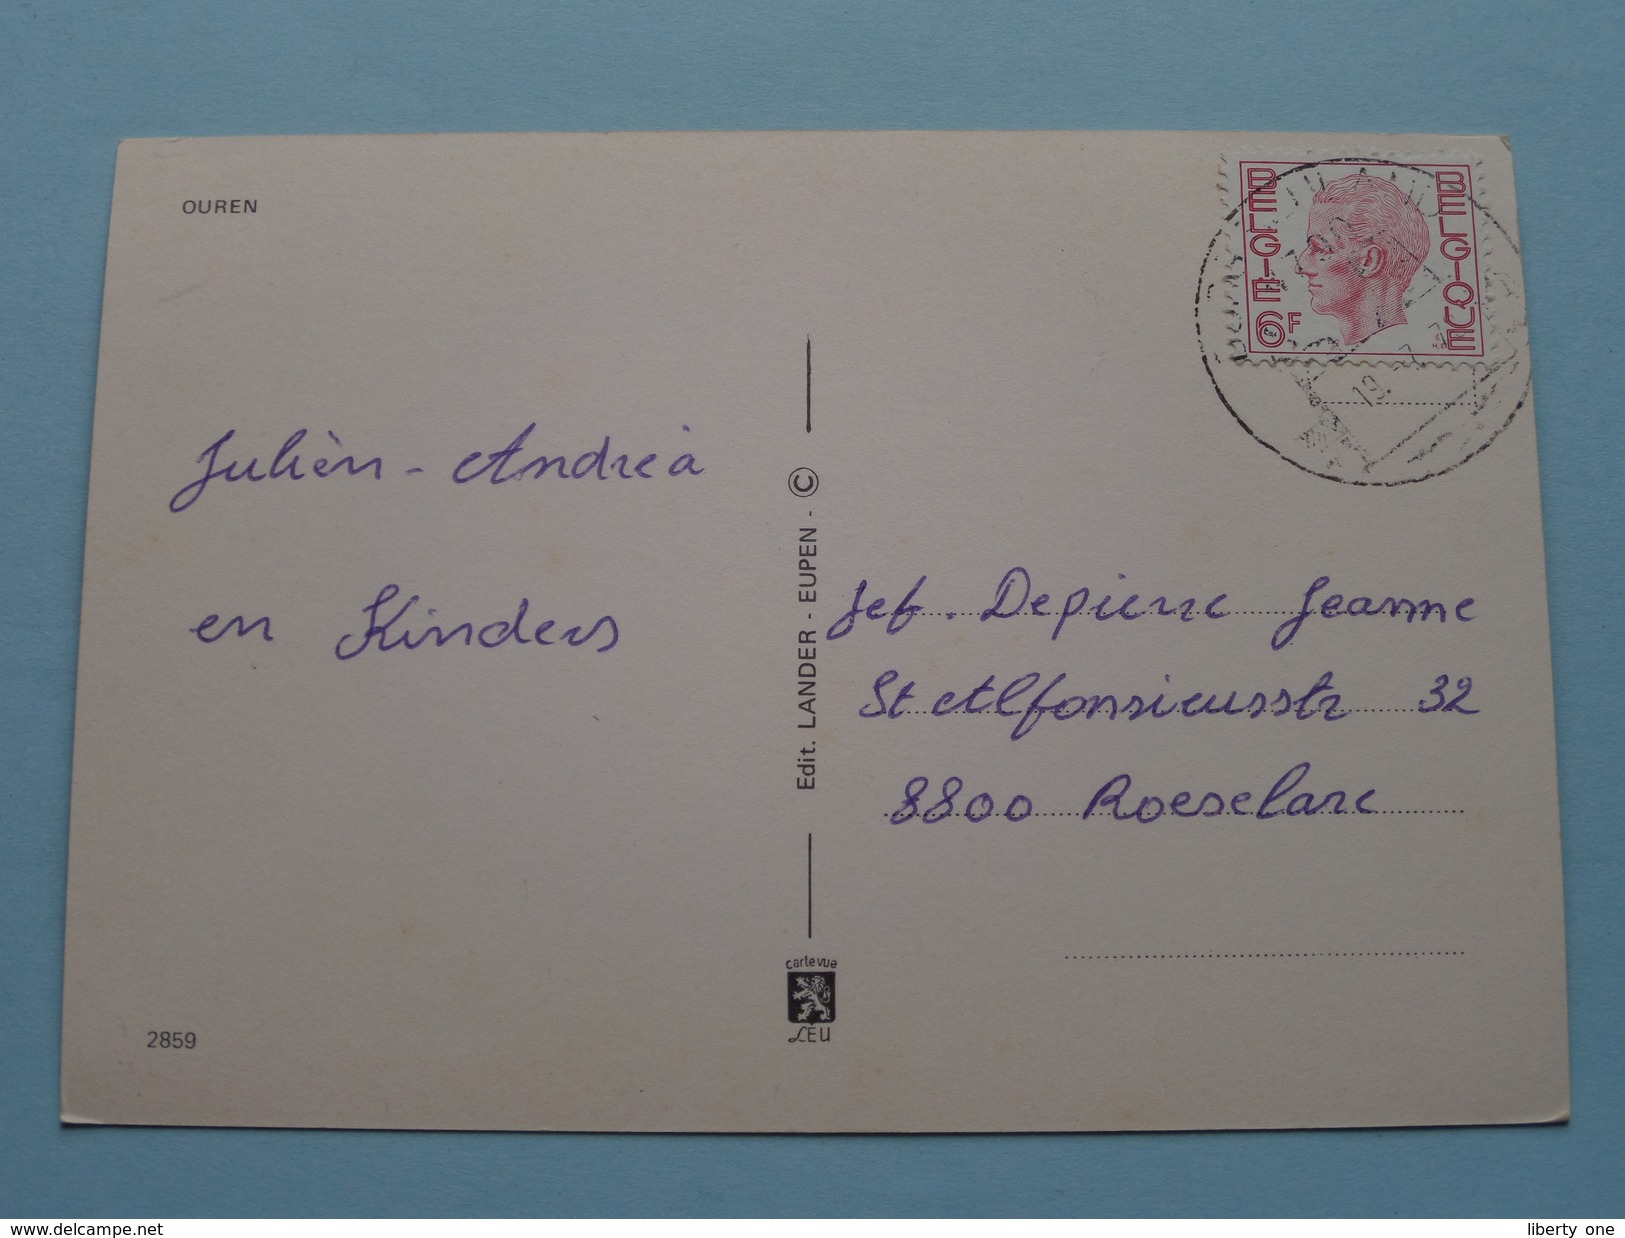 OUREN
BELGIE
6F
BELGIQUE
19.
Julièn - Andréa
en Kinders
Edit. LANDER - EUPEN - ©
Jef. Depierre Jeanne
St Alfonsieusstr 32
8800 Roeselare
carte vue
LEU
2859
www.delcampe.net
liberty_one